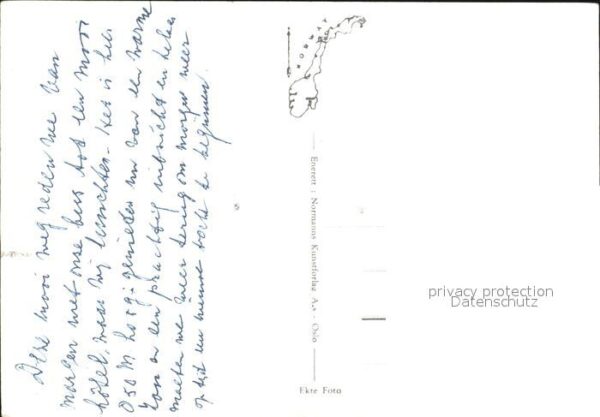 Deze mooi weg reden we van
morgen met onze bus tot een mooi
hôtel, waar wij lunchten. Het is hier
050 M hoog. genieten nu van een warme
zon en een prachtig uitzicht en
moeten we weer terug om morgen weer
op tijd een nieuwe tocht te beginnen.
NORWAY
Enerett: Normanns Kunstforlag A.s - Oslo
Ekte Foto
privacy protection
Datenschutz